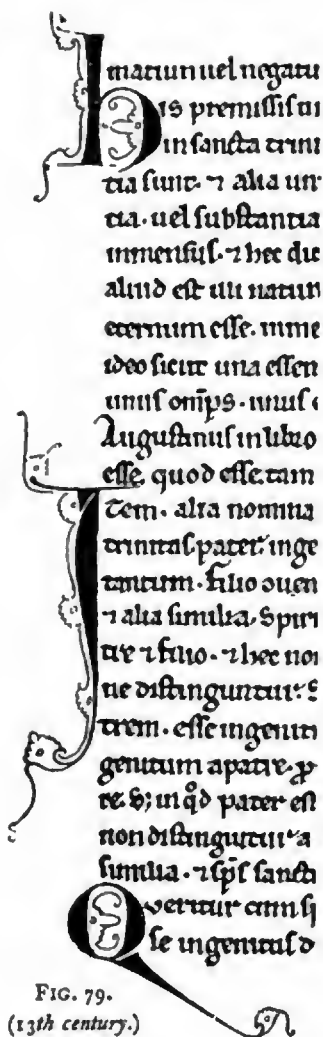 matiuu uel negatu
His premissis in
in sancta trini
tia sunt. ⁊ alia un
tia. uel substantia
inmensus. ⁊ hec dic
aliud est illi natura
eternum esse. inme
ideo sicut una essen
unus om̅ps. unus
Augustinus in libro
esse quod esse. tam
tem. alia nomina
trinitas pater. inge
tantum. filio quen
⁊ alia similia. Spiri
tre ⁊ filio. ⁊ hec noi
ne distinguntur. S
trem. esse ingeniti
genitum a patre. ꝓ
re. S; in qd pater est
non distinguitur a
similia. ⁊ sp̅s sancti
Queritur cum si
se ingenitus d
FIG. 79.
(13th century.)